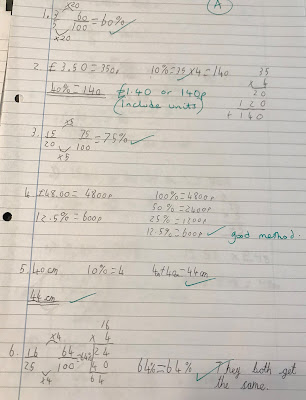 A
×20
1. 3 60 = 60%
5 100
×20
2. £3.50 = 350p 10% = 35 × 4 = 140 35
× 4
40% = 140 £1.40 or 140p 20
(Include units) 120
+ 140
×5
3. 15 75 = 75%
20 100
×5
4. £48.00 = 4800p 100% = 4800p
50% = 2400p
12.5% = 600p 25% = 1200p
12.5% = 600p good method.
5. 40cm 10% = 4 40+4cm = 44cm
44cm
16
×4 × 4
6. 16 64 = 64% 24
25 100 40 64% = 64% They both get
×4 64 the same.